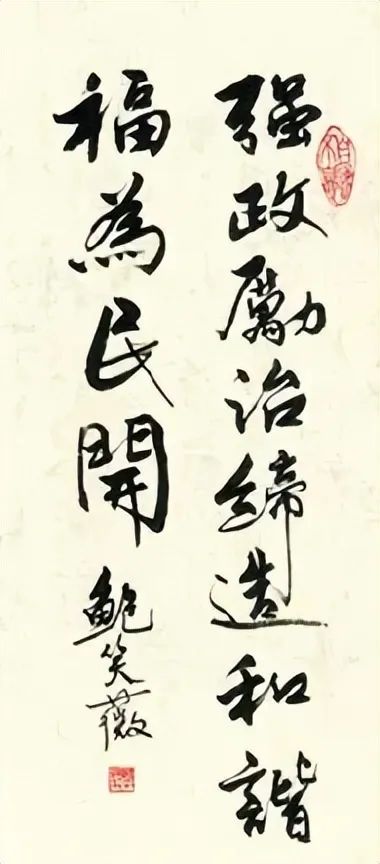 强政勵治締造和諧
福為民開
鮑笑薇